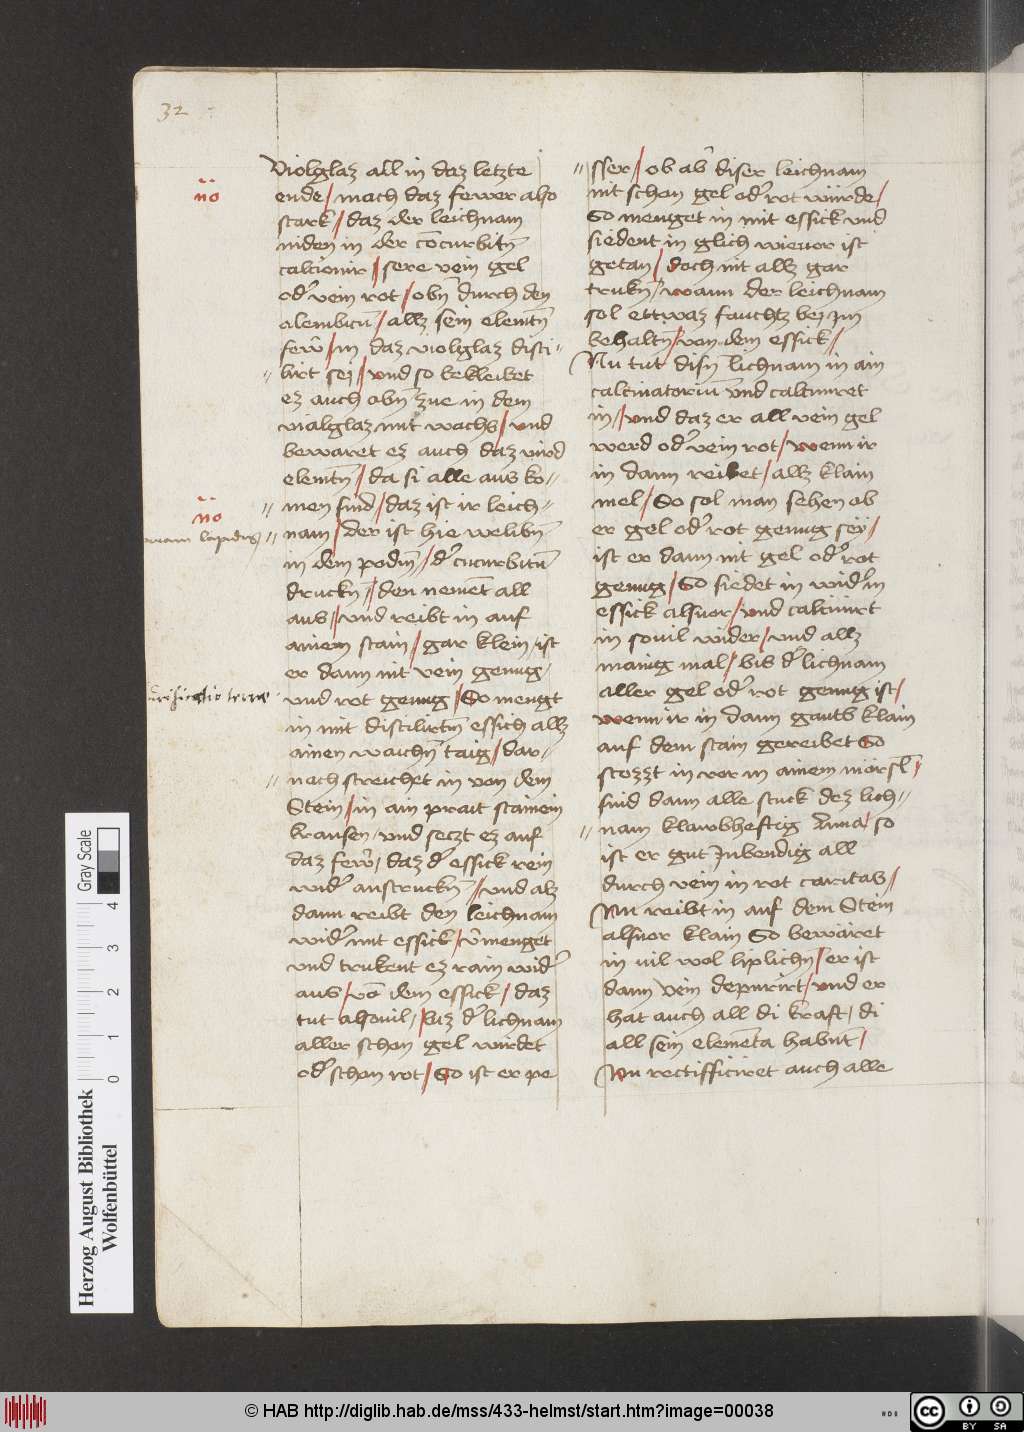 32
violglaz all in daz letzte
ende / mach daz fewer also
stark / daz der leichnam
niden in der cōcurbitn̄
calcionir / sere vein gel
od͛ vein rot / obn̄ durch den
alembicū / allz sein elemtn̄
few͛ / in daz violglaz disti-
lirt sej / vnd so bekleibet
ez auch obn̄ zue in dem
vialglaz mit wachs / vnd
bewaret ez auch daz vird
elemtn̄ / da si alle aus ko-
men sind / daz ist ir leich-
nam / der ist hie welibn̄
in dem podm̄ / d͛ cucurbitū
druckn̄ / den nemēt all
aus / vnd reibt in auf
ainem stain / gar klein / ist
er dann nit vein genug /
vnd rot genug / So mengt
in mit distilirtm̄ essich allz
ainen waichn̄ taig / dar-
nach streichet in von dem
Stein / in ain prait stainein
krausen / vnd seczt ez auf
daz few͛ / daz d͛ essick rein
wid͛ austruckn̄ / vnd alz
dann reibt den leichnam
wid͛ mit essick / v͛menget
vnd trukent ez rain wid͛
aus / vō dem essick / daz
tut alsouil / biz d͛ lichnam
aller schon gel wirdet
od͛ schon rot / So ist er pe
sser / ob ab͛ diser leichnam
nit schon gel od͛ rot würde /
So menget in mit essick vnd
siedent in glich wieuor ist
getan / doch nit allz gar
trukn̄ / wann der leichnam
sol ettwaz fauchtz bei im
behaltn̄ / von dem essick /
Nu tut disn̄ lichnam in ain
calcinatoriū vnd calciniret
in / vnd daz er all vein gel
werd od͛ vein rot / wenn ir
in dann reibet / allz klain
mel / So sol man sehen ob
er gel od͛ rot genug sey /
ist er dann nit gel od͛ rot
genug / So siedet in wid͛ in
essick alsuor / vnd calcinirt
in souil wider / vnd allz
manig mal / bis d͛ lichnam
aller gel od͛ rot genug ist /
wenn ir in dann gants klain
auf dem stain gereibet So
stozzt in vor in ainem mörsl̄ /
sind dann alle stuck dez lich-
nam klawbheftig so
ist er gut Inbendig all
durch vein in rot caritas /
Nu reibt in auf dem Stein
alsuor klain So bewaret
in uil wol liplichn̄ / er ist
dann vein depurirt / vnd er
hat auch all di kraft / di
all sein elemēta habnt /
Nu rectifficiret auch alle
n̈o
n̈o
lapidis
terre
Herzog August Bibliothek
Wolfenbüttel
Gray Scale
0 1 2 3 4
© HAB http://diglib.hab.de/mss/433-helmst/start.htm?image=00038
HAB
cc BY SA